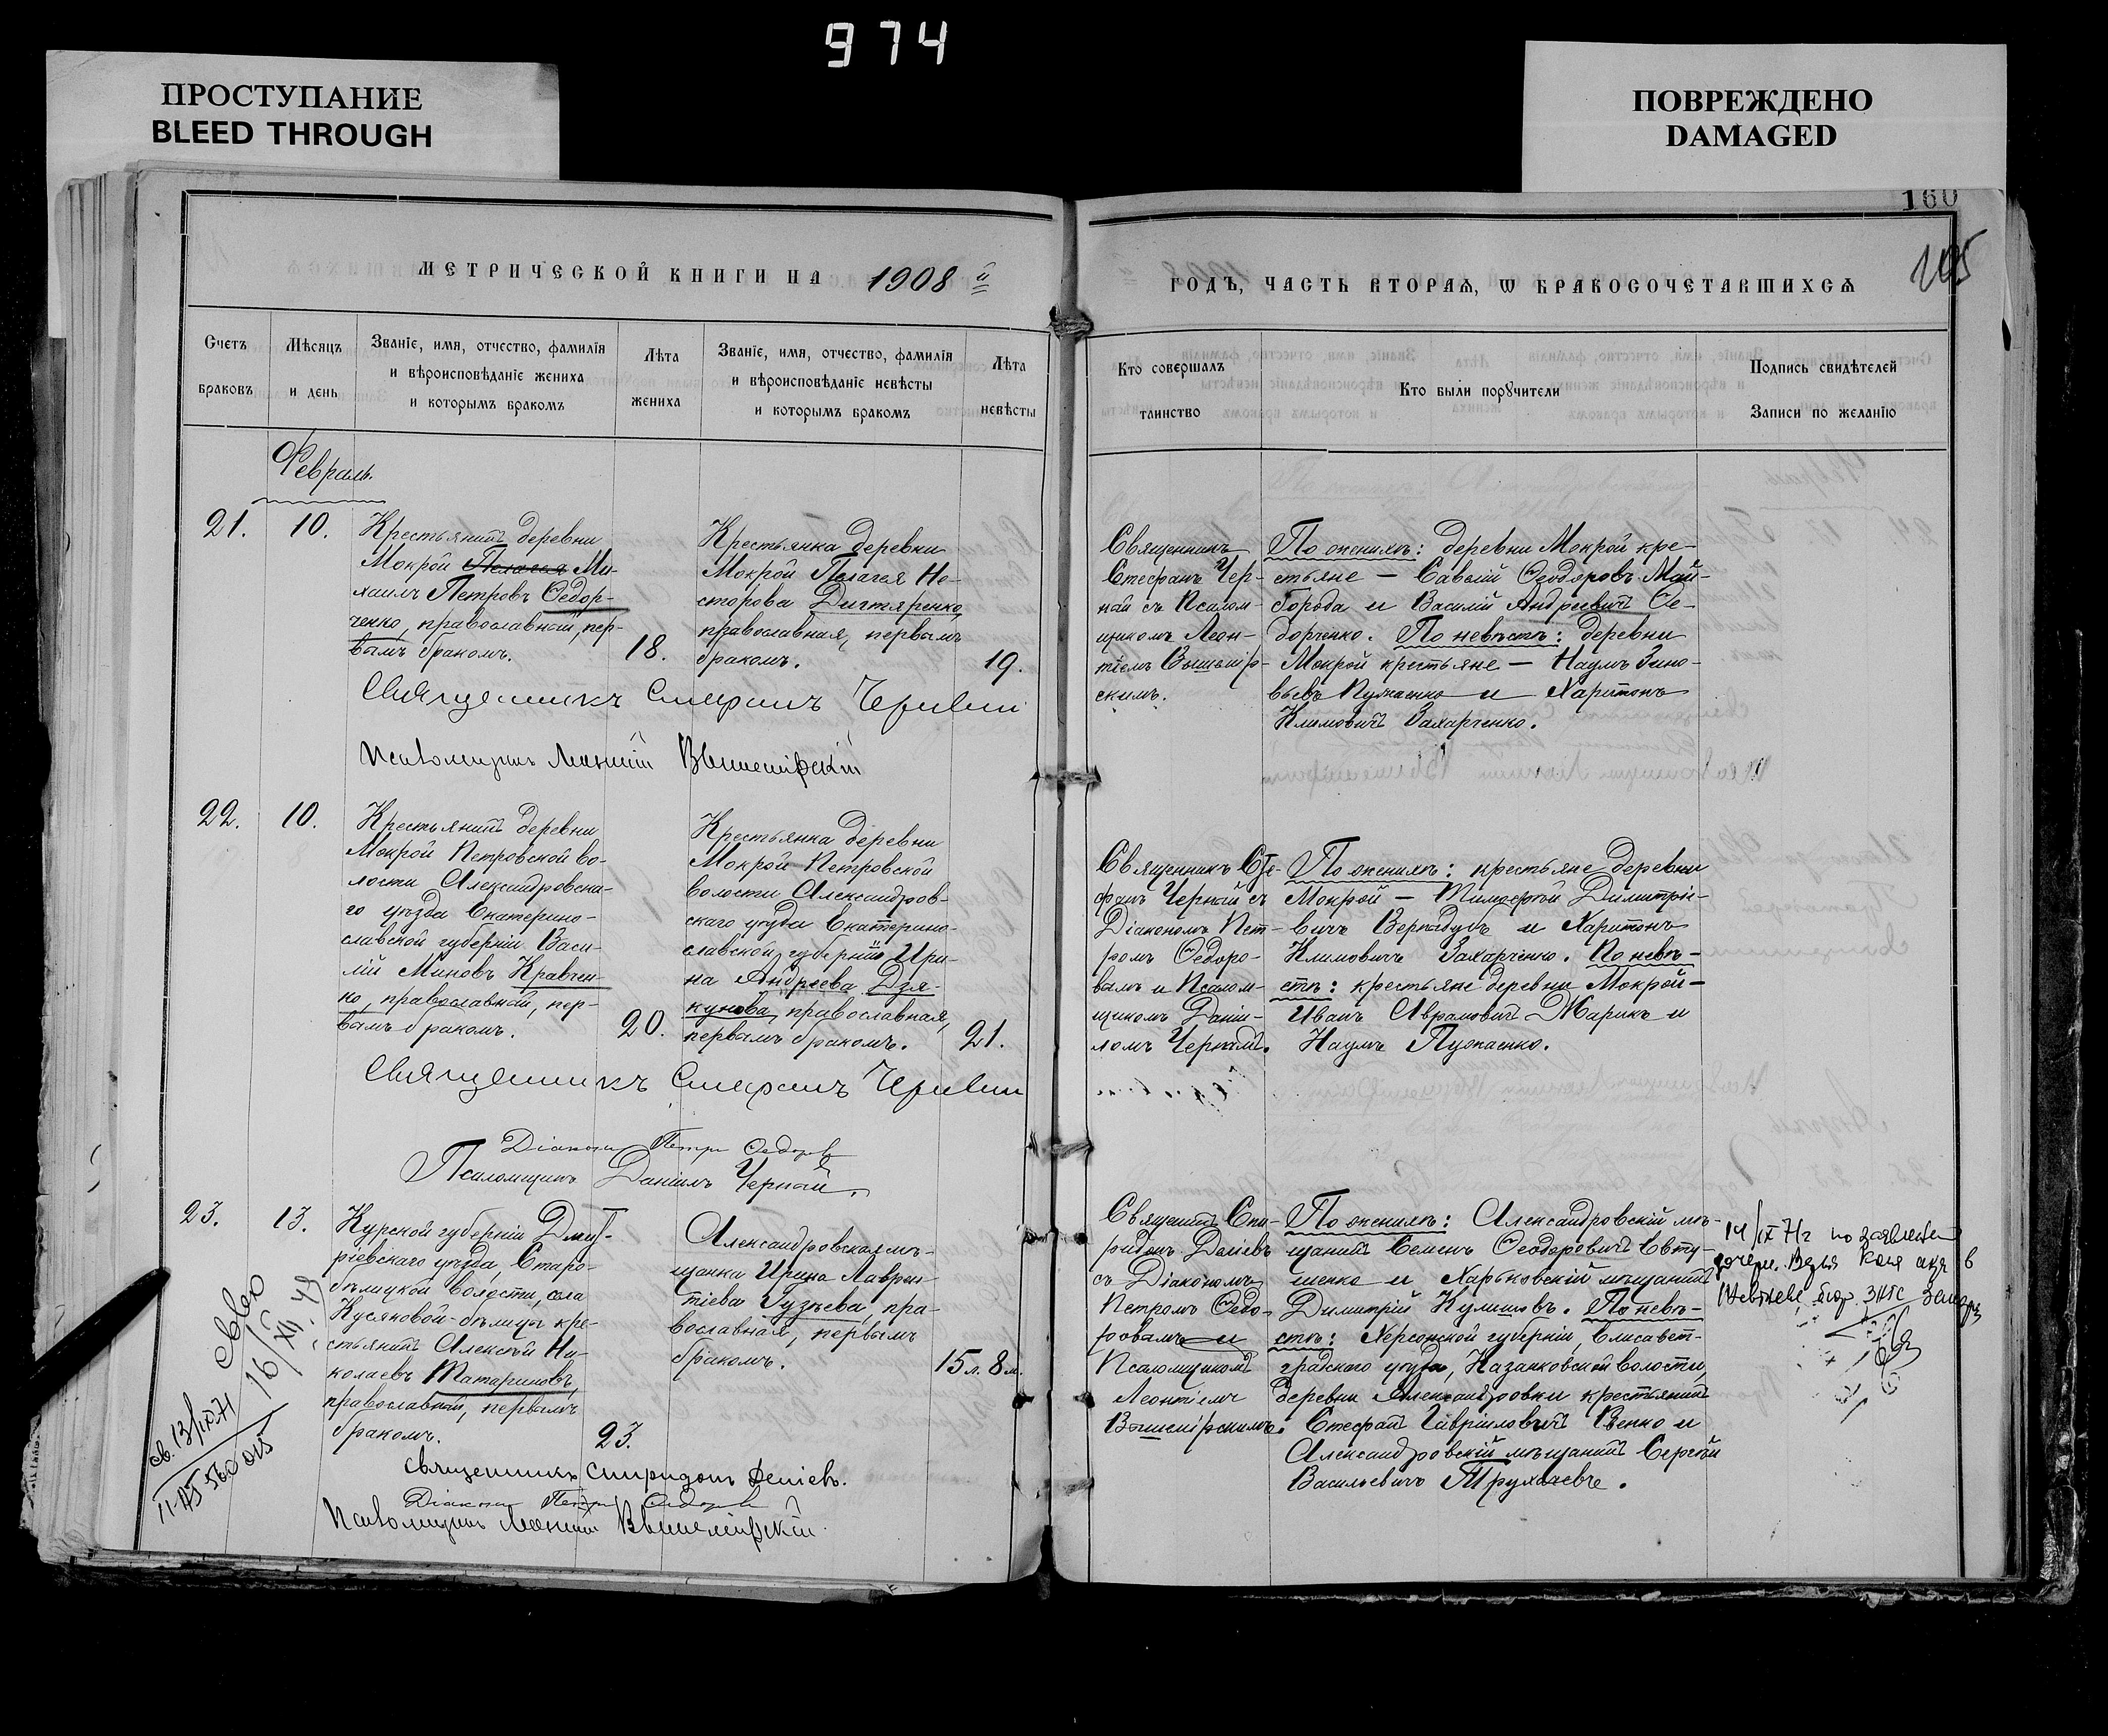 974
ПРОСТУПАНИЕ
BLEED THROUGH
ПОВРЕЖДЕНО
DAMAGED
160
205
МЕТРИЧЕСКОЙ КНИГИ НА 1908й
ГОДЪ, ЧАСТЬ ВТОРАѦ, Ѡ БРАКОСОЧЕТАВШИХСѦ
Счетъ браковъ
Мѣсяцъ и день
Званіе, имя, отчество, фамилія
и вѣроисповѣданіе жениха
и которымъ бракомъ
Лѣта жениха
Званіе, имя, отчество, фамилія
и вѣроисповѣданіе невѣсты
и которымъ бракомъ
Лѣта невѣсты
Кто совершалъ
таинство
Кто были порꙋчители
Подпись свидѣтелей
Записи по желанію
Февраль.
21.
10.
Крестьянинъ деревни
Мокрой Пелагея Ми-
хаилъ Петровъ Ѳедор-
ченко, православный, пер-
вымъ бракомъ.
18.
Крестьянка деревни
Мокрой Пелагея Не-
сторова Дигтяренко,
православная, первымъ
бракомъ.
19.
Священникъ
Стефанъ Чер-
ный съ Псалом-
щикомъ Леон-
тіемъ Вышемір-
скимъ.
По женихѣ: деревни Мокрой кре-
стьяне — Савелій Ѳеодоровъ Май-
борода и Василій Андреевичъ Ѳе-
дорченко. По невѣстѣ: деревни
Мокрой крестьяне — Наумъ Зино-
вьевъ Пужаенко и Харитонъ
Климовичъ Захарченко.
Священникъ Стефанъ Черный
Псаломщикъ Леонтій Вышемірскій
22.
10.
Крестьянинъ деревни
Мокрой Петровской во-
лости Александровска-
го уѣзда Екатерино-
славской губерніи Васи-
лій Миновъ Кравчен-
ко, православный, пер-
вымъ бракомъ.
20.
Крестьянка деревни
Мокрой Петровской
волости Александров-
скаго уѣзда Екатерино-
славской губерніи Ири-
на Андреева Дзя-
кунова, православная,
первымъ бракомъ.
21.
Священникъ Сте-
фанъ Черный съ
Діакономъ Пет-
ромъ Ѳедоро-
вымъ и Псалом-
щикомъ Даніи-
ломъ Чернымъ.
По женихѣ: крестьяне деревни
Мокрой — Тимофей Димитріе-
вичъ Вернидубъ и Харитонъ
Климовичъ Захарченко. По невѣ-
стѣ: крестьяне деревни Мокрой —
Иванъ Аврамовичъ Жарикъ и
Наумъ Пужаенко.
Священникъ Стефанъ Черный
Діаконъ Петръ Ѳедоровъ
Псаломщикъ Даніилъ Черный.
23.
13.
Курской губерніи Дмит-
ріевскаго уѣзда, Старо-
бѣлицкой волости, села
Кусяковой-бѣлицы кре-
стьянинъ Алексѣй Ни-
колаевъ Татариновъ,
православный, первымъ
бракомъ.
23.
Александровская мѣ-
щанка Ирина Лаврен-
тіева Гузѣева, пра-
вославная, первымъ
бракомъ.
15 л. 8 м.
Священникъ Спи-
ридонъ Деліевъ
съ Діакономъ
Петромъ Ѳедо-
ровымъ и
Псаломщикомъ
Леонтіемъ
Вышемірскимъ.
По женихѣ: Александровскій мѣ-
щанинъ Семенъ Ѳеодоровичъ Евту-
шенко и Харьковскій мѣщанинъ
Димитрій Кулишовъ. По невѣ-
стѣ: Херсонской губерніи, Елисавет-
градскаго уѣзда, Казанковской волости,
деревни Александровки крестьянинъ
Стефанъ Гавріиловичъ Венко и
Александровскій мѣщанинъ Сергѣй
Васильевичъ Трухачевъ.
14/IX 71г по заявлению
дочери
св-во
16/XII 49
св. 13/IX 71
II-АЪ 560015
Священникъ Спиридонъ Деліевъ.
Діаконъ Петръ Ѳедоровъ
Псаломщикъ Леонтій Вышемірскій.